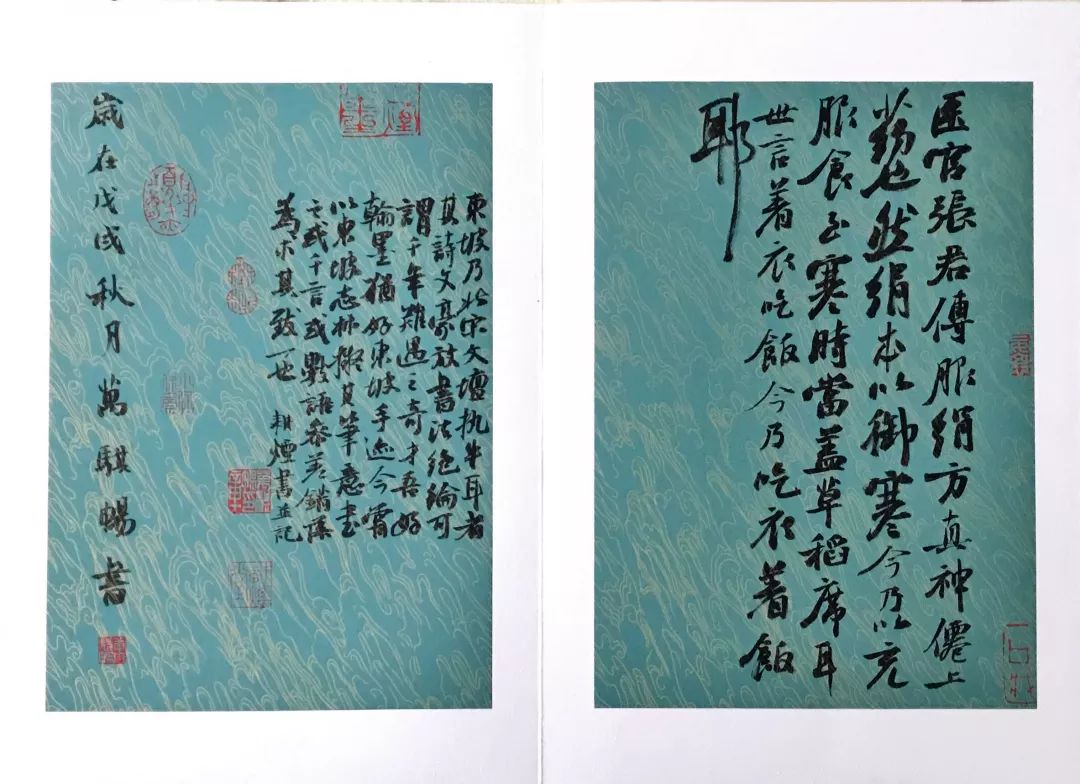 医官張君傳服絹方真神僊上
藥也然絹本以御寒今乃以充
服食至寒時當盖草稻席耳
世言着衣吃飯今乃吃衣著飯
耶
東坡乃北宋文壇執牛耳者
其詩文豪放書法絶綸可
謂千年難遇之奇才吾好
翰墨猶好東坡手迹今霄
以東坡志林擬其筆意書
之或千言或數語参差錯落
為求其致一也 耕煙書並記
歲在戊戌秋月萬騏暢書